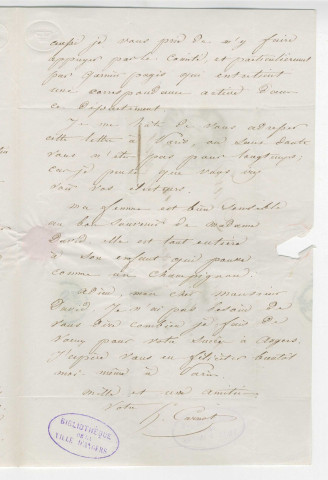 aussi je vous prie de m'y faire
appuyer par le comité, et particulièrement
par Garnier pagès qui entretient
une correspondance active dans
ce département.
Je me hâte de vous adresser
cette lettre à Paris, où sans doute
vous n'êtes pas pour longtemps;
car je pense que vous
voir vos électeurs.
ma femme est bien sensible
au bon souvenir de madame
David. elle est tout entière
à son enfant qui pousse
comme un champignon.
adieu, mon cher monsieur
David. Je n'ai pas besoin de
vous dire combien je fais de
voeux pour votre à angers.
J'espère vous en féliciter bientôt
moi même à Paris.
mille et une amitiés
Votre
h. Carnot
BIBLIOTHÈQUE
DE LA
VILLE D'ANGERS